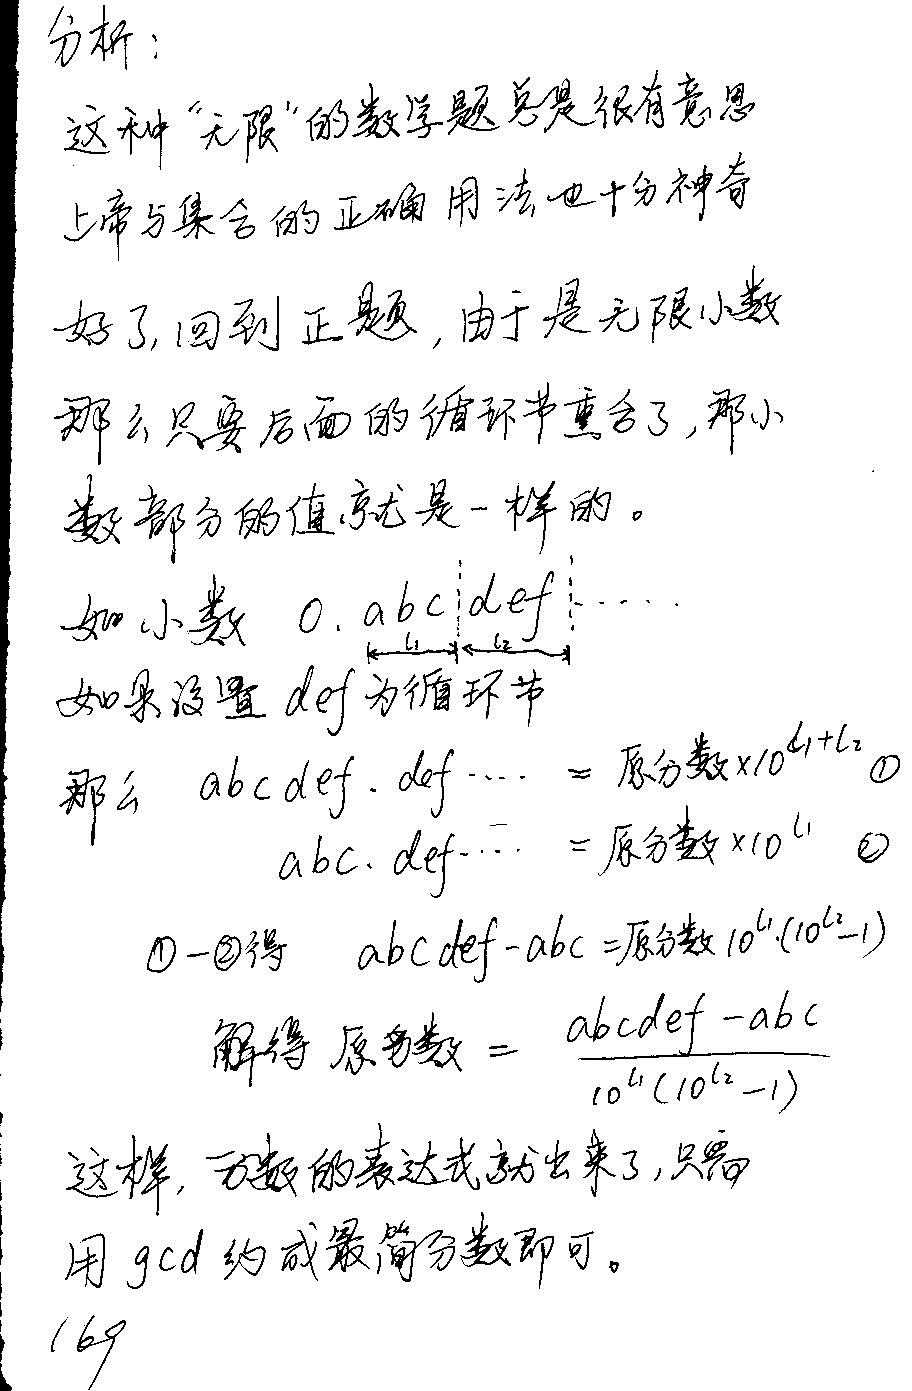 分析：
这种“无限”的数学题总是很有意思
上帝与集合的正确用法也十分神奇
好了，回到正题，由于是无限小数
那么只要后面的循环节重合了，那小
数部分的值就是一样的。
如小数 0.abc def ......
L1 L2
如果设置 def 为循环节
那么 abcdef.def.... = 原分数×10^(L1+L2) ①
abc.def.... = 原分数×10^L1 ②
①-②得 abcdef-abc=原分数10^L1·(10^L2-1)
解得 原分数 = (abcdef-abc)/(10^L1(10^L2-1))
这样，分数的表达式就出来了，只需
用 gcd 约成最简分数即可。
169